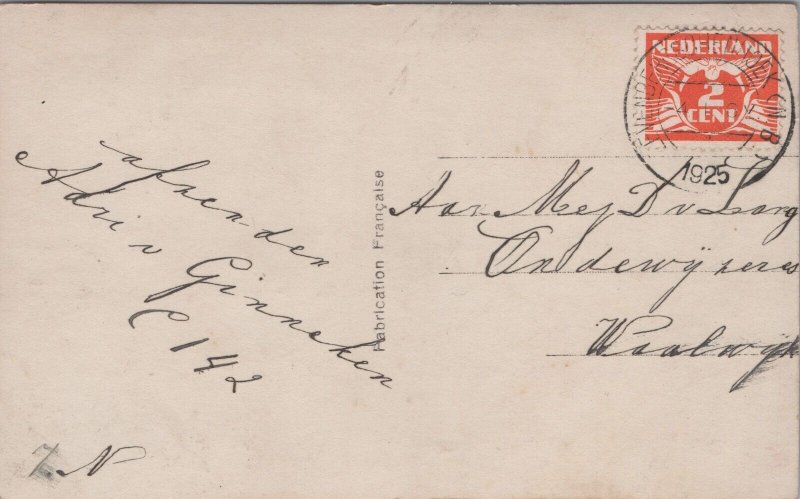 afzender
Adri v Ginneken
C 142
7. N
Fabrication Française
NEDERLAND
2
CENT
1925
Aan Mej D v Dang
Onderwijzeres
Waalwijk